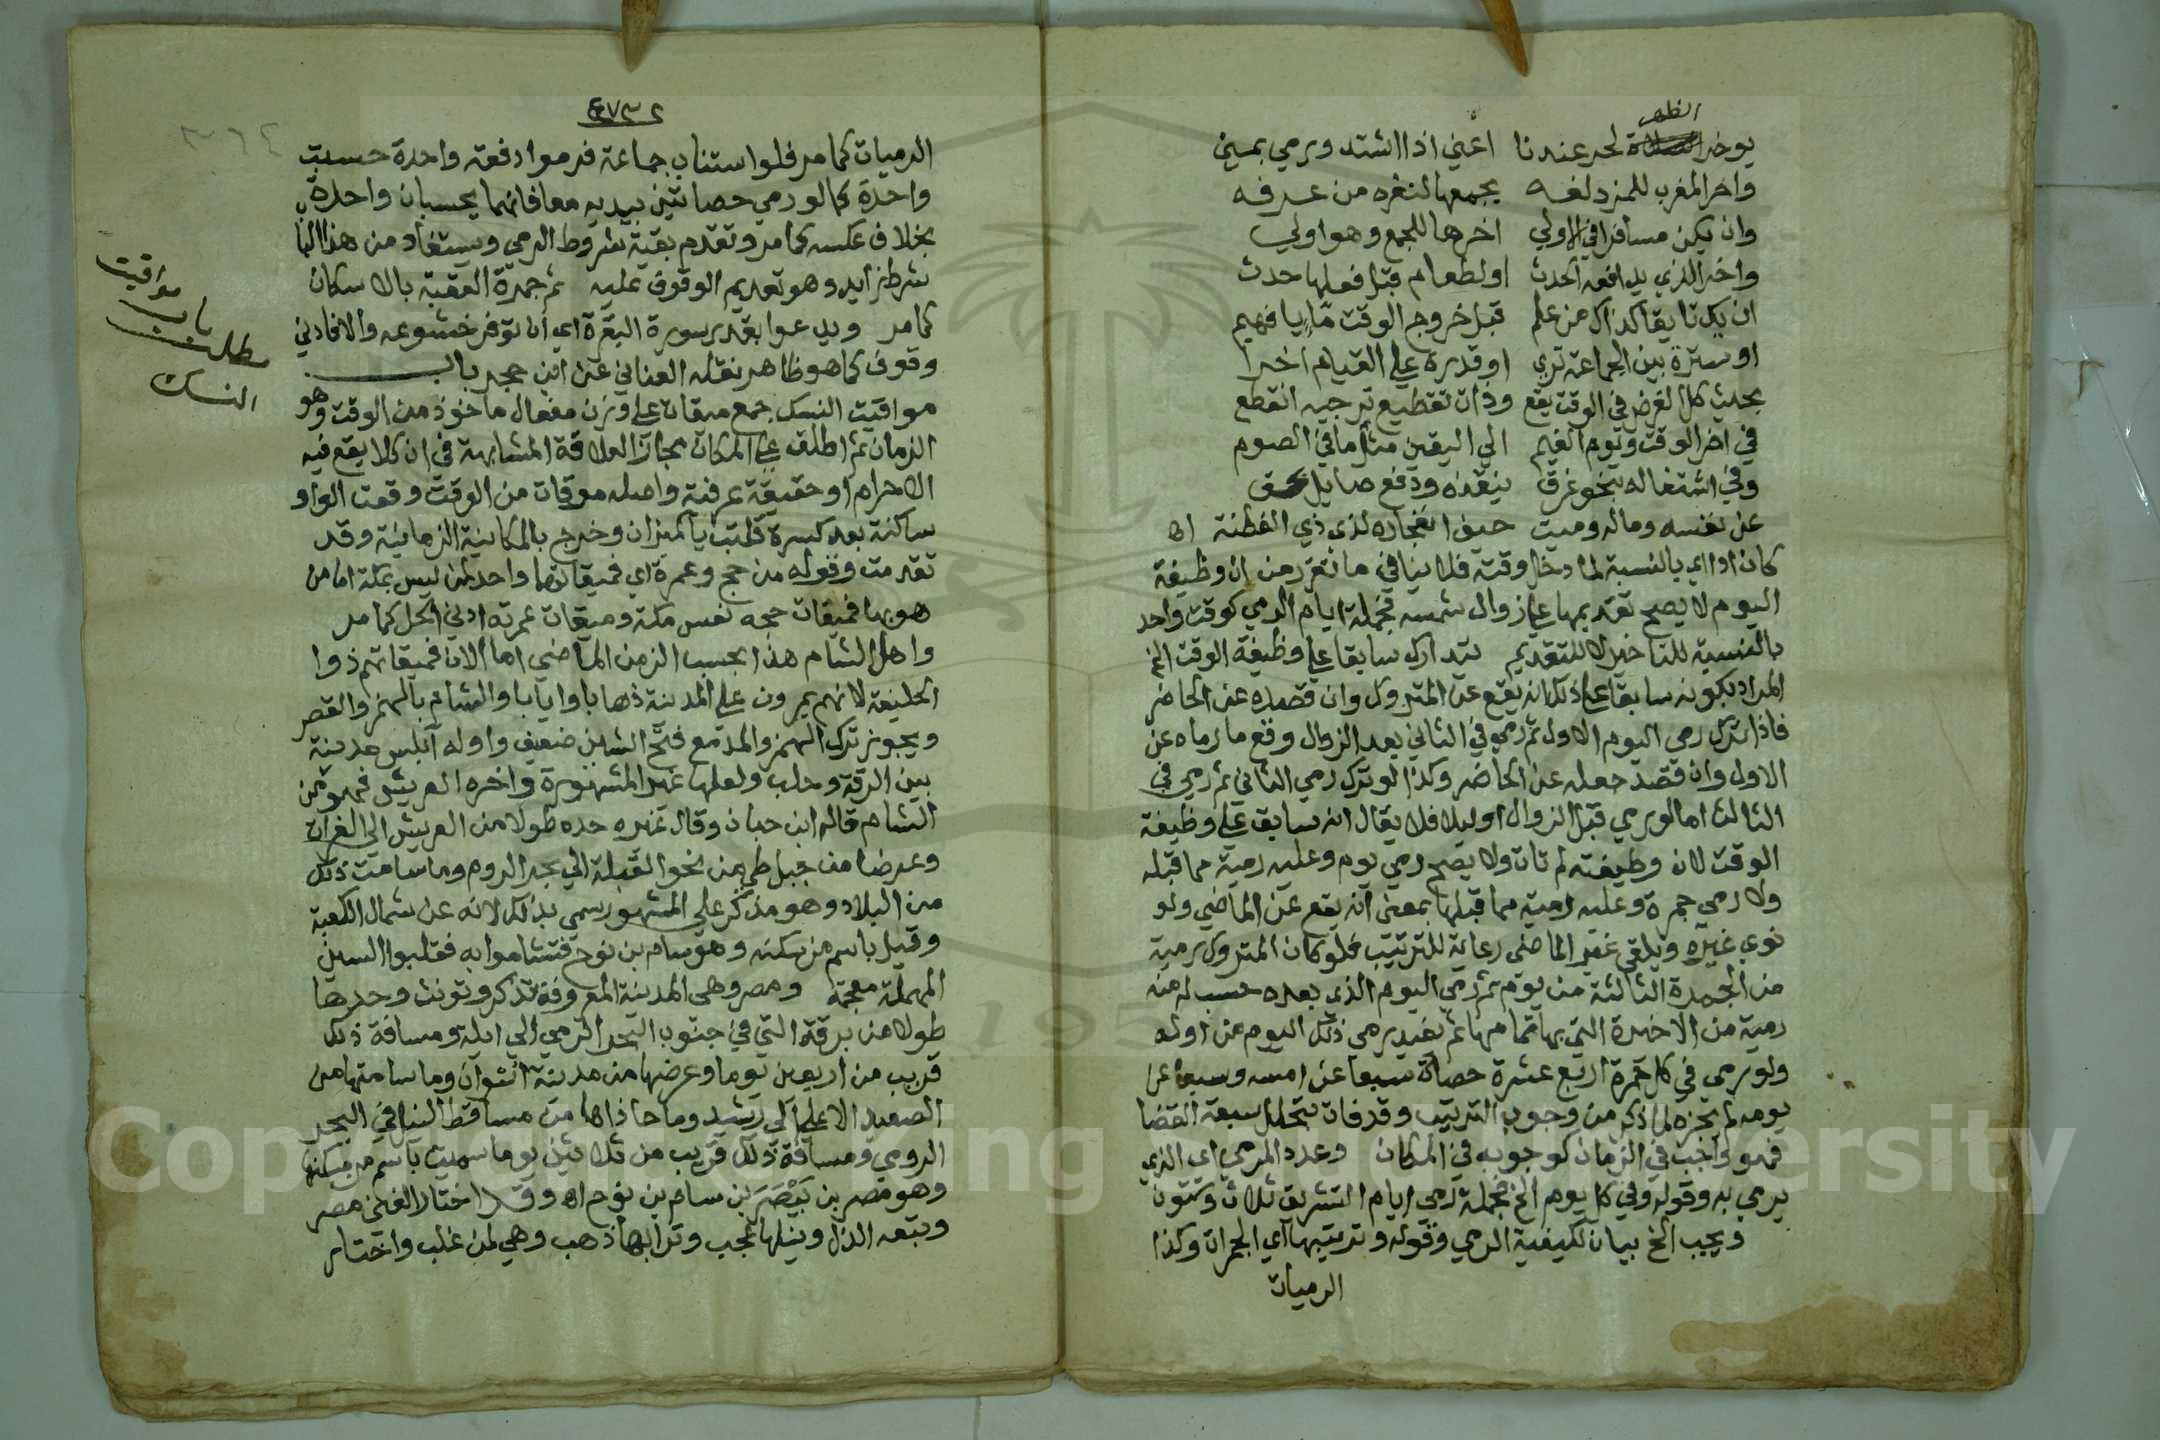 الظهر
يوخر الصلاة لحر عندنا اعني اذا اشتد ورمي بمني
واخر المغرب للمزدلفه يجمعها لنفره من عرفه
وان يكن مسافرا في الاولي اخرها للجمع وهو اولي
واخر الذي يدافعه الحدث او لطعام قبل فعلها حدث
قبل خروج الوقت يا فهيم
او سترة بين الجماعة تري او قدره علي القيام اخرا
بحيث كل الفرض في الوقت يقع وذات تقطيع ترجيه انقطع
في اخر الوقت ويوم الغيم الي اليقين مثل ما في الصوم
وفي اشتغاله بنحو غرق ينقذه ودفع صايل
عن نفسه وماله وميت حيف انفجاره لذي ذي الفطنة اه
كان ادا اي بالنسبة لما دخل وقته فلا ينافي ما تقرر من ان وظيفة
اليوم لا يصح تقديمها علي زوال شمسه فجملة ايام الرمي كوقت واحد
بالنسبة للتاخير لا للتقديم تدارك سابقا علي وظيفة الوقت الخ
المراد بكونه سابقا علي ذلك انه يقع عن المتروك وان قصده عن الحاضر
فاذا ترك رمي اليوم الاول ثم رمي في الثاني بعد الزوال وقع ما رماه عن
الاول وان قصد جعله عن الحاضر وكذا لو ترك رمي الثاني ثم رمي في
الثالث اما لو رمي قبل الزوال او ليلا فلا يقال انه سابق علي وظيفة
الوقت لان وظيفته لم تات ولا يصح رمي يوم وعليه رمية مما قبله
ولا رمي جمرة وعليه رمية مما قبلها بمعني انه يقع عن الماضي ولو
نوي غيره ويلغي غير الماضي رعاية للترتيب فلو كان المتروك رمية
من الجمرة الثالثة من يوم ثم رمي اليوم الذي بعده حسب له منه
رمية من الاخيرة التي بها تمامها ثم يعيد رمي ذلك اليوم من اوله
ولو رمي في كل جمرة اربع عشرة حصاة سبعا عن امسه وسبعا عن
يومه لم يجزه لما ذكر من وجوب الترتيب وقد فات بتخلل سبعة القضا
فهو واجب في الزمان كوجوبه في المكان وعدد المرمي اي الذي
يرمي به وقوله وفي كل يوم الخ فجملة رمي ايام التشريق ثلاث وستون
ويجب الخ بيان لكيفية الرمي وقوله وترتيبها اي الجمرات وكذا
الرميات
الرميات كما مر فلو استناب جماعة فرموا دفعة واحدة حسبت
واحدة كما لو رمي حصاتين بيديه معا فانهما يحسبان واحدة
بخلاف عكسه كما مر وتقدم بقية شروط الرمي ويستفاد من هذا الباب
شرط زايد وهو تقديم الوقوف عليه ثم جمرة العقبة بالاسكان
كما مر ويدعوا بقدر سورة البقرة اي ان توفر خشوعه والا فادني
وقوف كما هو ظاهر نقله العناني عن ابن حجر باب
مواقيت النسك جمع ميقات علي وزن مفعال ماخوذ من الوقت وهو
الزمان ثم اطلق علي المكان مجازا لعلاقة المشابهة في ان كلا يقع فيه
الاحرام او حقيقة عرفية واصله موقات من الوقت وقعت الواو
ساكنة بعد كسرة قلبت يا كميزان وخرج بالمكانية الزمانية وقد
تقدمت وقوله من حج وعمرة اي فميقاتهما واحد لمن ليس بمكة اما من
هو بها فميقات حجه نفس مكة وميقات عمرته ادني الحل كما مر
واهل الشام هذا بحسب الزمن الماضي اما الان فميقاتهم ذوا
الحليفة لانهم يمرون علي المدينة ذهابا وايابا والشام بالهمز والقصر
ويجوز ترك الهمز والمد مع فتح الشين ضعيف واوله نابلس مدينة
بين الرقة وحلب ولعلها غير المشهورة واخره العريش فهو من
الشام قاله ابن حبان وقال غيره حده طولا من العريش الي الفرات
وعرضا من جبل طي من نحو القبلة الي بحر الروم وما سامت ذلك
من البلاد وهو مذكر علي المشهور سمي بذلك لانه عن شمال الكعبة
وقيل باسم من سكنه وهو سام بن نوح فتشاموا به فقلبوا السين
المهملة معجمة ومصر وهي المدينة المعروفة تذكر وتونث وحدها
طولا من برقة التي في جنوب البحر الرومي الي ايلة ومسافة ذلك
قريب من اربعين يوما وعرضها من مدينة اسوان وما سامتها من
الصعيد الاعلي الي رشيد وما حاذاها من مساقط النيل في البحر
الرومي ومسافة ذلك قريب من ثلاثين يوما سميت باسم من سكنها
وهو مصر بن بيصر بن سام بن نوح اه وقد اختار الغني مصر
وتبعه الذل ونيلها عجب وترابها ذهب وهي لمن غلب واختار
مطلب
باب
مواقيت
النسك